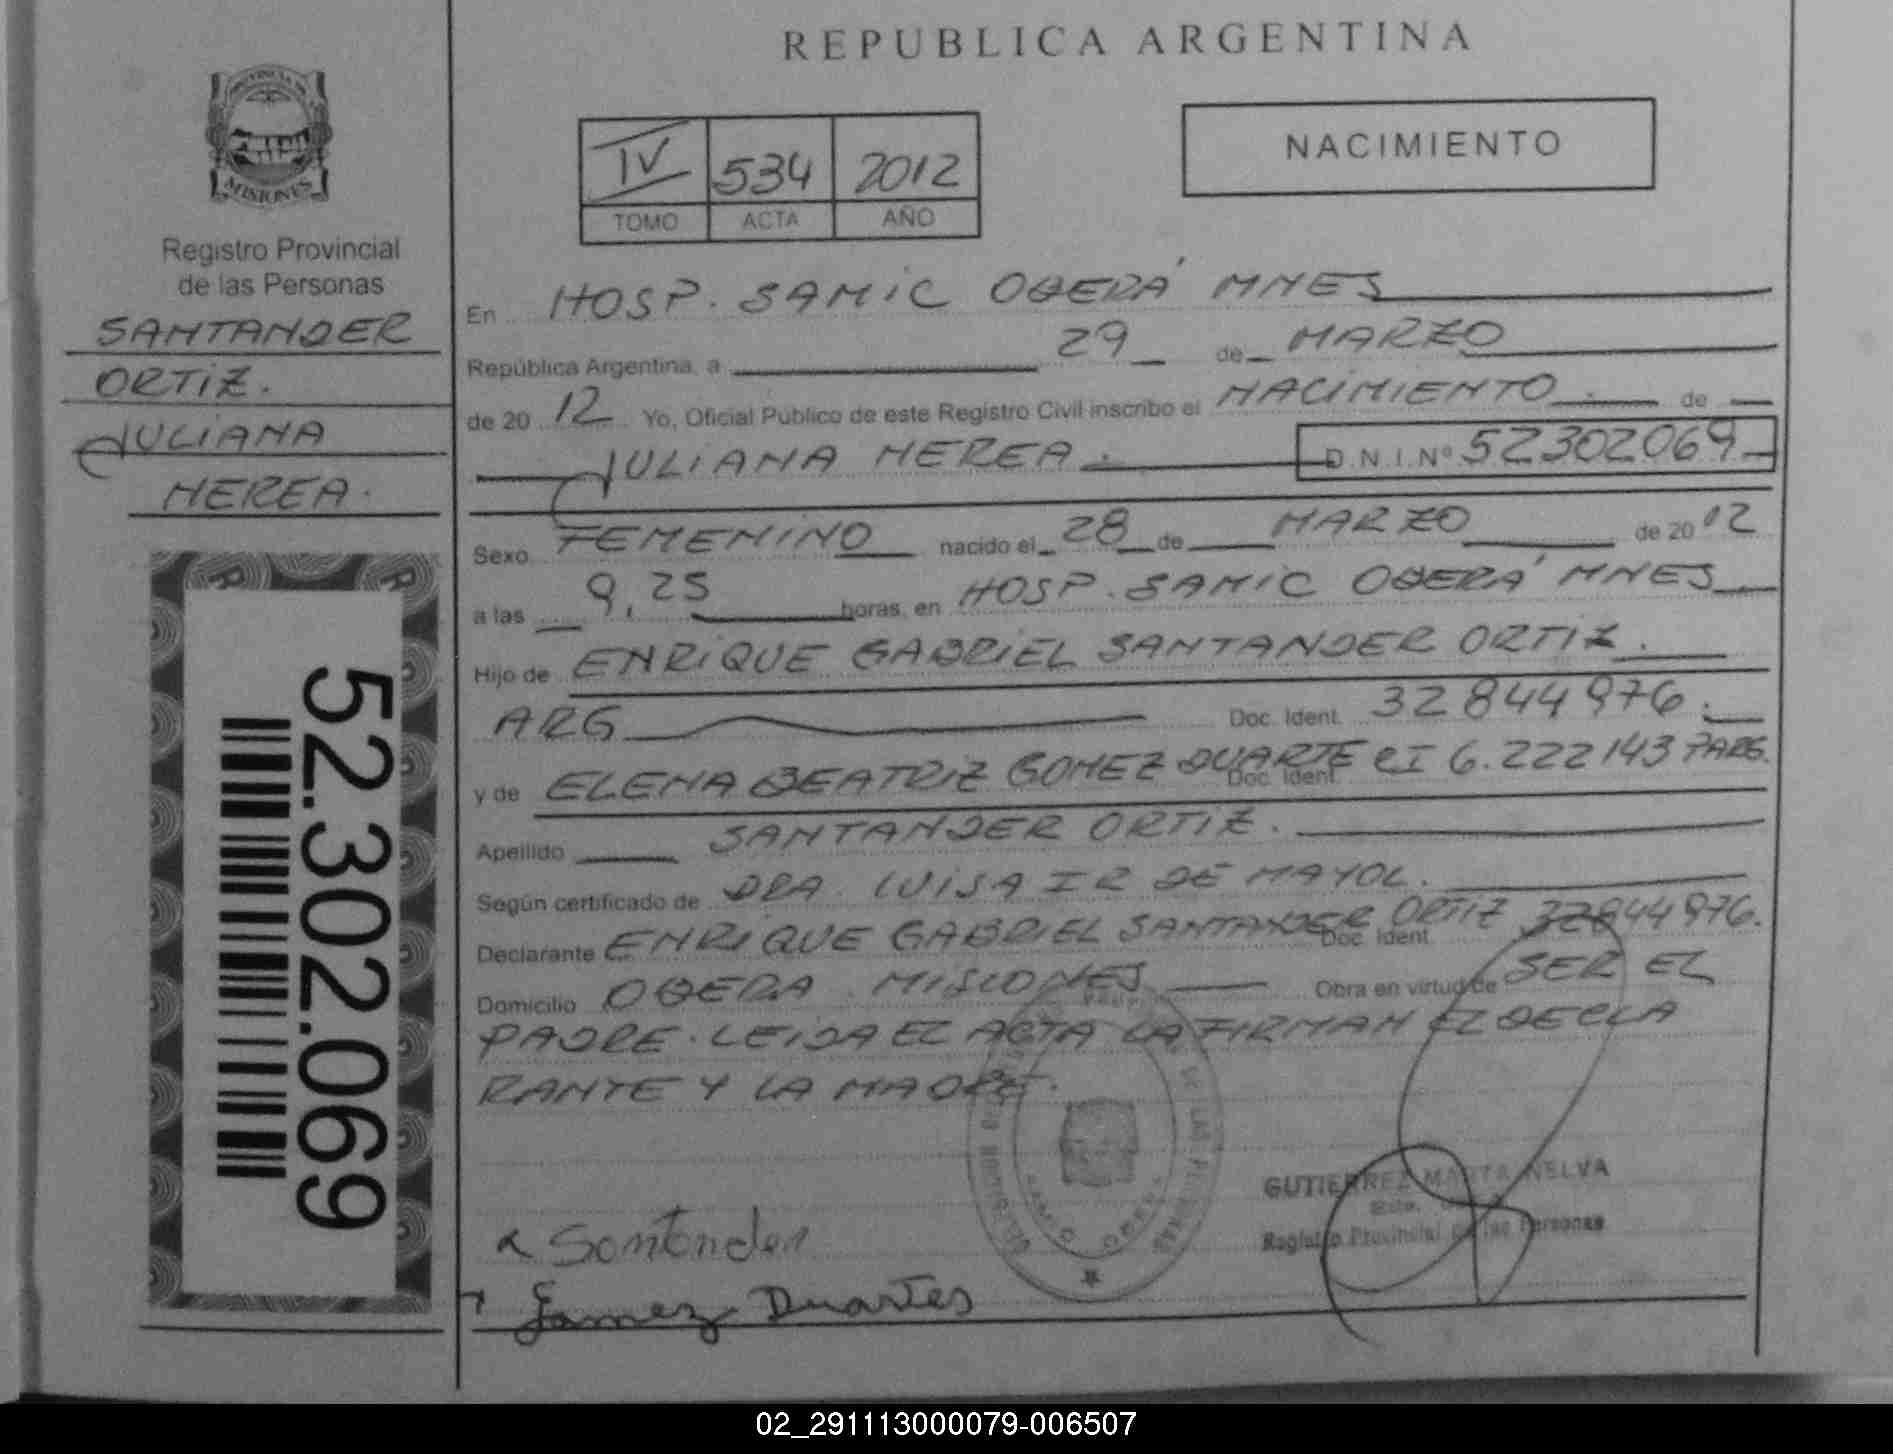 REPUBLICA ARGENTINA
PROVINCIA DE
MISIONES
Registro Provincial
de las Personas
SANTANDER
ORTIZ.
JULIANA
NEREA.
52.302.069
IV 534 2012
TOMO ACTA AÑO
NACIMIENTO
En HOSP. SAMIC OBERÁ MNES
República Argentina, a 29 de MARZO
de 20 12 Yo, Oficial Público de este Registro Civil inscribo el NACIMIENTO. de
JULIANA NEREA. D.N.I.Nº 52302069
Sexo FEMENINO nacido el 28 de MARZO de 20 12
a las 9,25 horas, en HOSP. SAMIC OBERÁ MNES
Hijo de ENRIQUE GABRIEL SANTANDER ORTIZ.
ARG Doc. Ident. 32844976.
y de ELENA BEATRIZ GOMEZ DUARTE Doc. Ident. CI 6.222143 PARG.
Apellido SANTANDER ORTIZ.
Según certificado de DRA. LUISA I R DE MAYOL.
Declarante ENRIQUE GABRIEL SANTANDER ORTIZ Doc. Ident. 32844976.
Domicilio OBERA. MISIONES Obra en virtud de SER EL
PADRE. LEIDA EL ACTA LA FIRMAN EL DECLA
RANTE Y LA MADRE.
DE LAS PERSONAS
GUTIERREZ MARTA NELVA
Registro Provincial de las Personas
Santander
Gamez Duartes
02_291113000079-006507